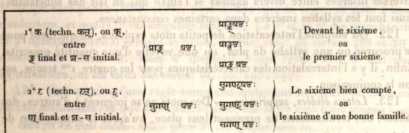 1° क (techn. कतॄ), ou क्,
entre
ङ् final et श-स initial.
प्राङ् षष्ठः
प्राङ्क्षष्ठः
प्राङ्षष्ठः
प्राङ् षष्ठः
Devant le sixième,
ou
le premier sixième.
2° ट (techn. टतॄ), ou ट्,
entre
ण् final et श-स initial.
सुगण् षष्ठः
सुगण्ट्षष्ठः
सुगण्ट् षष्ठः
सुगण् षष्ठः
Le sixième bien compté,
ou
le sixième d'une bonne famille.